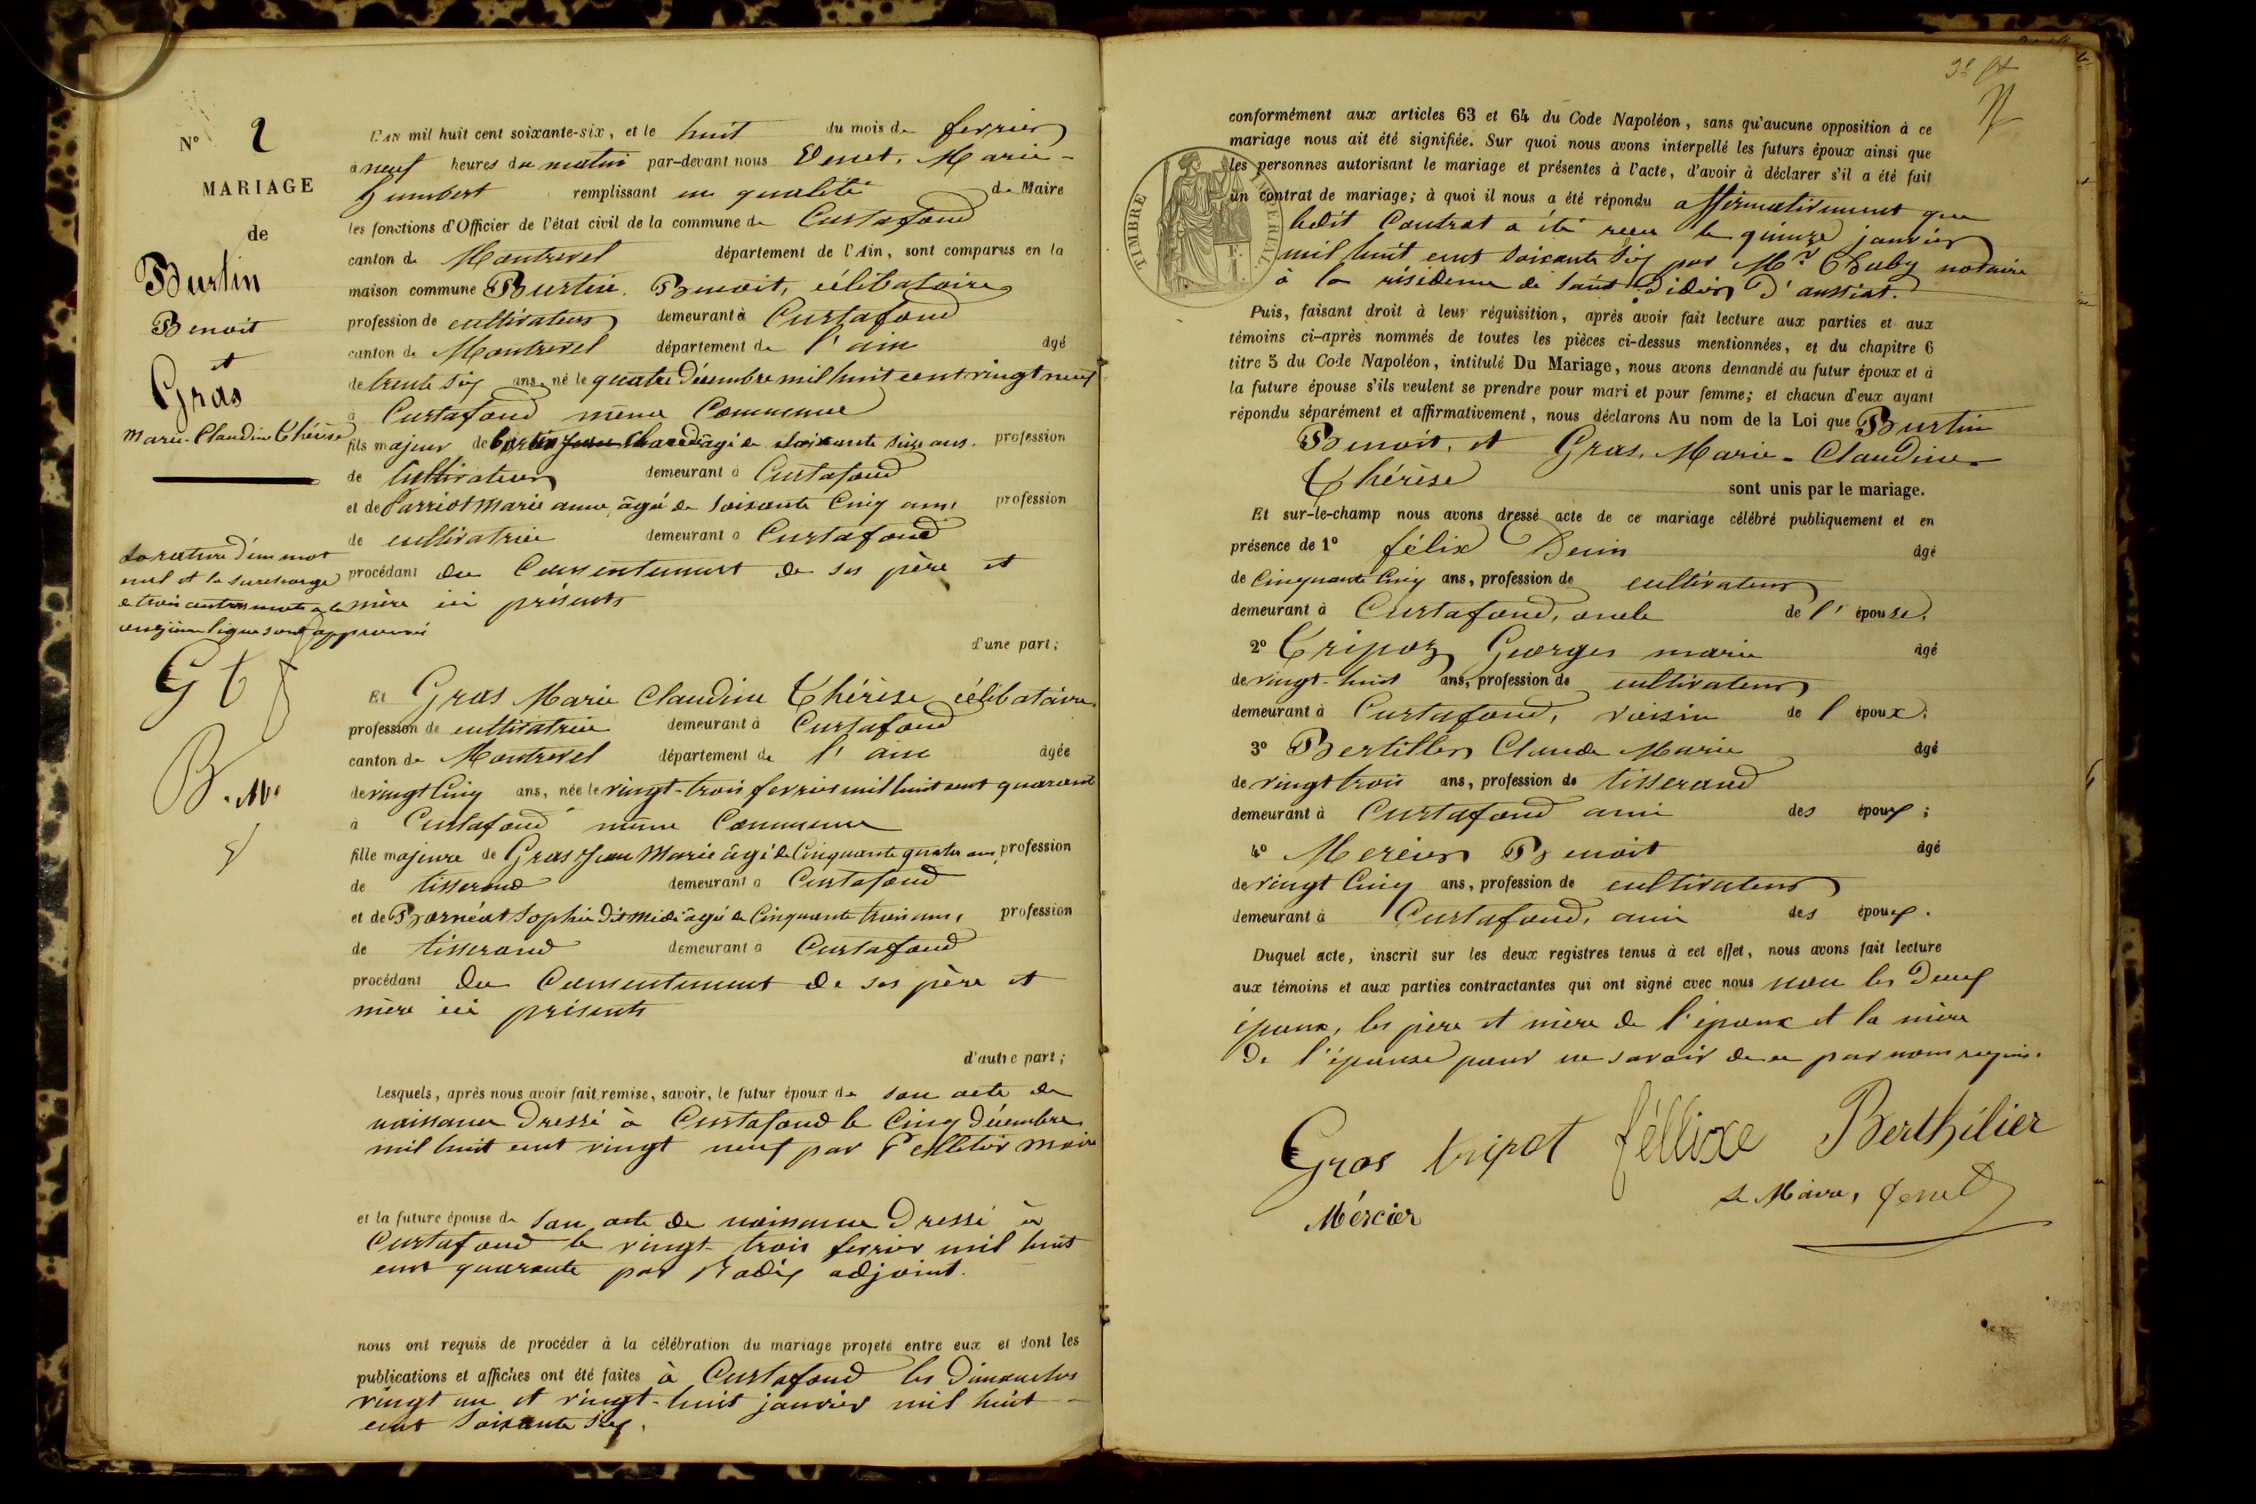 N° 2
MARIAGE
de
Burtin
Benoit
et
Gras
Marie-Claudine Thérèse
La rature d'un mot
nul et la surcharge
de trois autres mots à la
onzième ligne sont approuvés
G t f
B. M.
L'An mil huit cent soixante-six, et le huit du mois de fevrier
à neuf heures du matin par-devant nous Venet, Marie-
humbert remplissant en qualité de Maire
les fonctions d'Officier de l'état civil de la commune de Curtafond
canton de Montrevel département de l'Ain, sont comparus en la
maison commune Burtin, Benoit, célibataire
profession de cultivateur demeurant à Curtafond
canton de Montrevel département de l'ain âgé
de trente six ans, né le quatre décembre mil huit cent vingt neuf
à Curtafond même Commune
fils majeur de burtin âgé de soixante seize ans. profession
de Cultivateur demeurant à Curtafond
et de Parriot Marie anne, âgée de soixante Cinq ans, profession
de cultivatrice demeurant à Curtafond
procédant du Consentement de ses père et
mère ici présents
d'une part;
Et Gras Marie Claudine Thérèse célibataire
profession de cultivatrice demeurant à Curtafond
canton de Montrevel département de l'ain âgée
de vingt Cinq ans, née le vingt-trois fevrier mil huit cent quarante
à Curtafond même Commune
fille majeure de Gras Jean Marie âgé de Cinquante quatre ans, profession
de tisserand demeurant à Curtafond
et de Sophie dit Midi âgée de Cinquante trois ans, profession
de tisserand demeurant à Curtafond
procédant du Consentement de ses père et
mère ici présents
d'autre part;
Lesquels, après nous avoir fait remise, savoir, le futur époux de son acte de
naissance Dressé à Curtafond le Cinq Décembre
mil huit cent vingt neuf par Pelletier maire
et la future épouse de son acte de naissance Dressé à
Curtafond le vingt-trois fevrier mil huit
cent quarante par Radix adjoint.
nous ont requis de procéder à la célébration du mariage projeté entre eux et dont les
publications et affiches ont été faites à Curtafond les Dimanches
vingt un et vingt-huit janvier mil huit
cent soixante six.
conformément aux articles 63 et 64 du Code Napoléon, sans qu'aucune opposition à ce
mariage nous ait été signifiée. Sur quoi nous avons interpellé les futurs époux ainsi que
les personnes autorisant le mariage et présentes à l'acte, d'avoir à déclarer s'il a été fait
un contrat de mariage; à quoi il nous a été répondu affirmativement que
ledit Contrat a été reçu le quinze janvier
mil huit cent soixante six par Mr Chuby notaire
à la résidence de saint didier d'aussiat.
TIMBRE IMPÉRIAL
Puis, faisant droit à leur réquisition, après avoir fait lecture aux parties et aux
témoins ci-après nommés de toutes les pièces ci-dessus mentionnées, et du chapitre 6
titre 5 du Code Napoléon, intitulé Du Mariage, nous avons demandé au futur époux et à
la future épouse s'ils veulent se prendre pour mari et pour femme; et chacun d'eux ayant
répondu séparément et affirmativement, nous déclarons Au nom de la Loi que Burtin
Benoit, et Gras, Marie-Claudine
Thérèse sont unis par le mariage.
Et sur-le-champ nous avons dressé acte de ce mariage célébré publiquement et en
présence de 1° félix Denin âgé
de Cinquante Cinq ans, profession de cultivateur
demeurant à Curtafond, oncle de l'épouse,
2° Tripoz Georges marie âgé
de vingt-huit ans, profession de cultivateur
demeurant à Curtafond, voisin de l époux;
3° Bertillier Claude Marie âgé
de vingt trois ans, profession de tisserand
demeurant à Curtafond ami des époux;
4° Mercier Benoit âgé
de vingt Cinq ans, profession de cultivateur
demeurant à Curtafond, ami des époux.
Duquel acte, inscrit sur les deux registres tenus à cet effet, nous avons fait lecture
aux témoins et aux parties contractantes qui ont signé avec nous non les Deux
époux, les père et mère de l'époux et la mère
de l'épouse pour ne savoir de ce par nous requis.
Gras tripot féllixe Berthilier
Mércier Le Maire, Venet